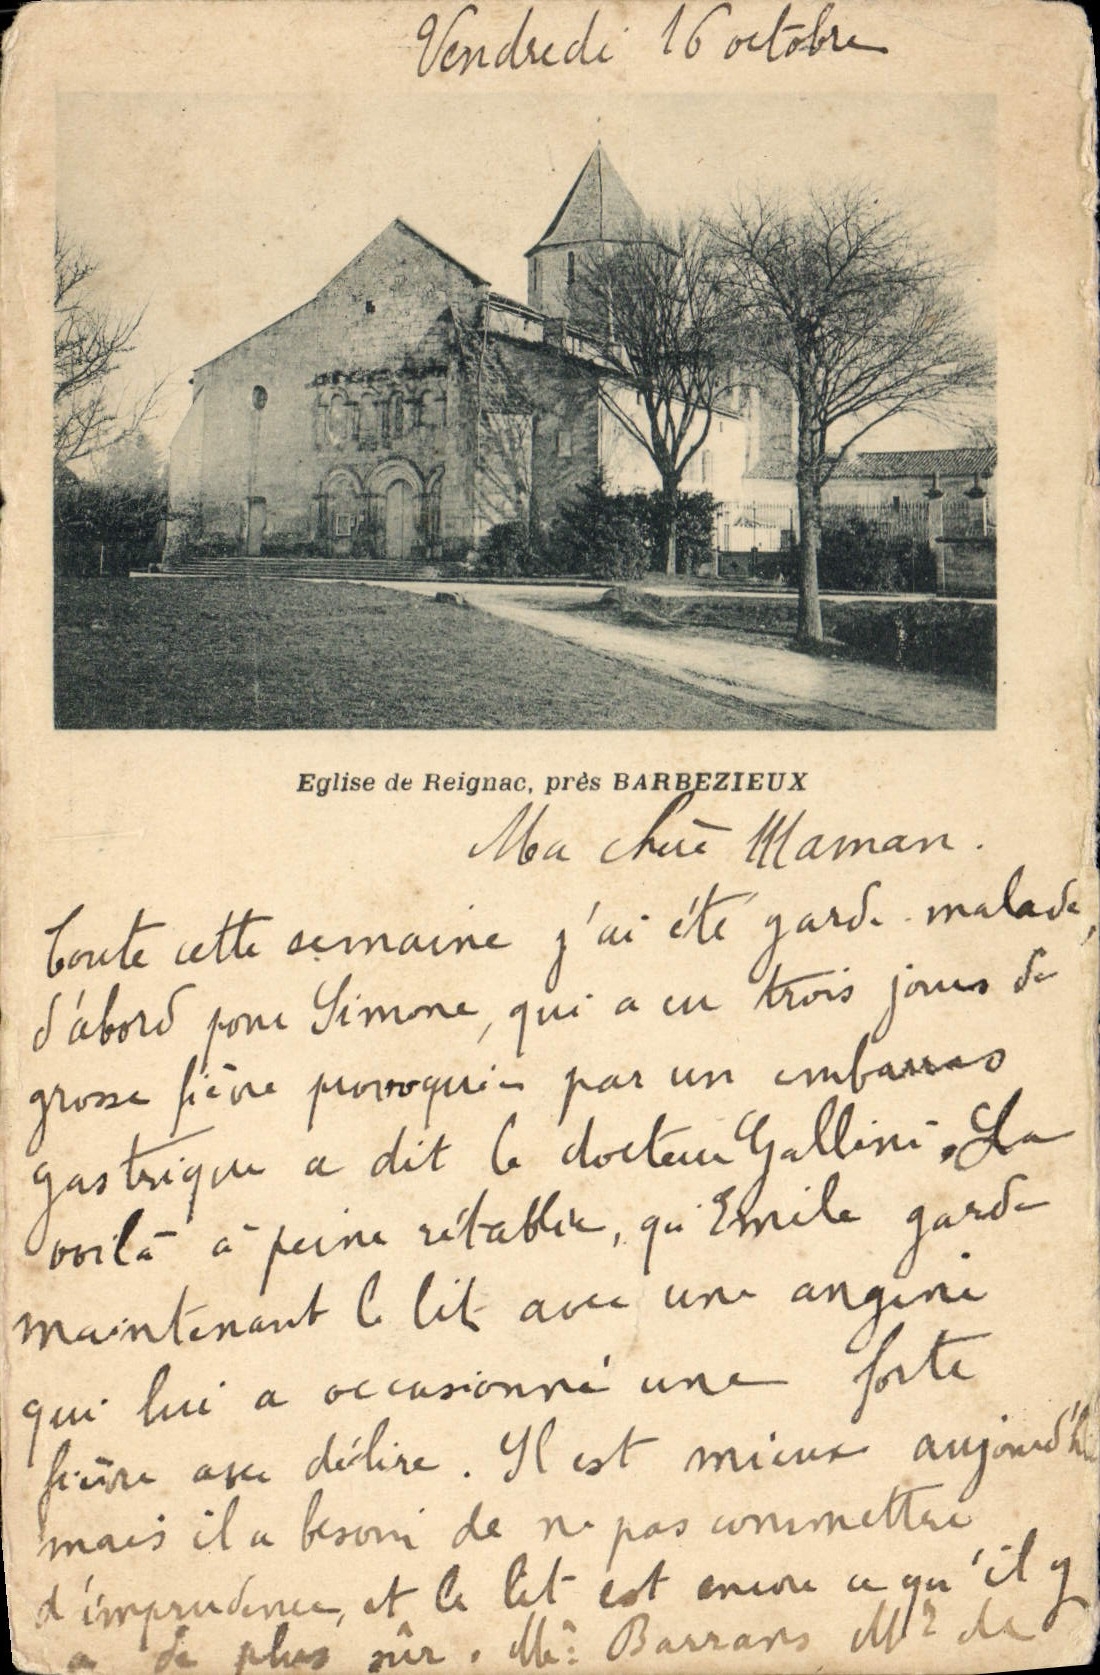 Vendredi 16 octobre
Eglise de Reignac, près BARBEZIEUX
Ma chère Maman.
Toute cette semaine j'ai été garde-malade,
d'abord pour Simone, qui a eu trois jours de
grosse fièvre provoquée par un embarras
gastrique a dit le docteur Gallini. La
voilà à peine rétablie, qu'Emile garde
maintenant le lit avec une angine
qui lui a occasionné une forte
fièvre avec délire. Il est mieux aujourd'hui
mais il a besoin de ne pas commettre
d'imprudence, et le lit est encore ce qu'il y
a de plus sûr. Me Barrans Mr de